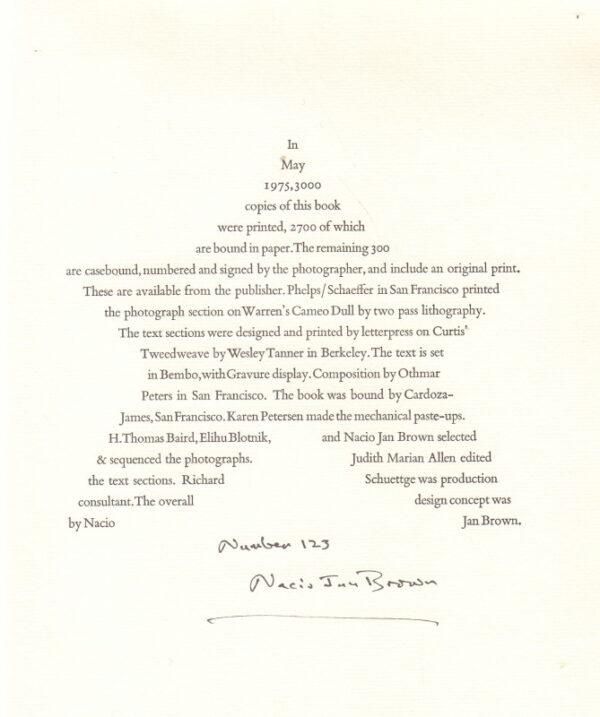 In
May
1975,3000
copies of this book
were printed, 2700 of which
are bound in paper. The remaining 300
are casebound, numbered and signed by the photographer, and include an original print.
These are available from the publisher. Phelps/Schaeffer in San Francisco printed
the photograph section on Warren's Cameo Dull by two pass lithography.
The text sections were designed and printed by letterpress on Curtis'
Tweedweave by Wesley Tanner in Berkeley. The text is set
in Bembo, with Gravure display. Composition by Othmar
Peters in San Francisco. The book was bound by Cardoza-
James, San Francisco. Karen Petersen made the mechanical paste-ups.
H. Thomas Baird, Elihu Blotnik, and Nacio Jan Brown selected
& sequenced the photographs. Judith Marian Allen edited
the text sections. Richard Schuettge was production
consultant. The overall design concept was
by Nacio Jan Brown.
Number 123
Nacio Jan Brown